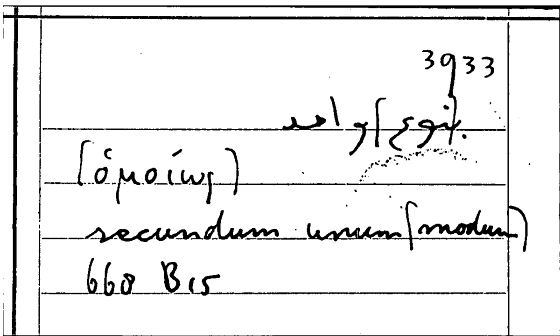 3933
بنوع] واحد]
[ὁμοίως]
secundum unum [modum]
660 B15